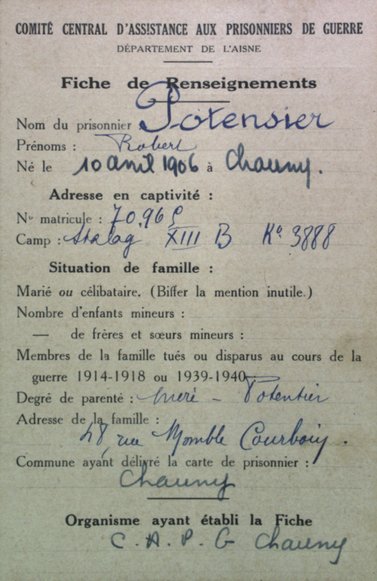 COMITÉ CENTRAL D'ASSISTANCE AUX PRISONNIERS DE GUERRE
DÉPARTEMENT DE L'AISNE
Fiche de Renseignements
Nom du prisonnier Potensier
Prénoms : Robert
Né le 10 avril 1906 à Chauny.
Adresse en captivité :
N° matricule : 70.965
Camp : Stalag XIII B Ko 3888
Situation de famille :
Marié ou célibataire. (Biffer la mention inutile.)
Nombre d'enfants mineurs :
— de frères et sœurs mineurs :
Membres de la famille tués ou disparus au cours de la
guerre 1914-1918 ou 1939-1940
Degré de parenté : Mère - Potentier
Adresse de la famille :
48, rue
Commune ayant délivré la carte de prisonnier :
Chauny
Organisme ayant établi la Fiche
C. A. P. G Chauny